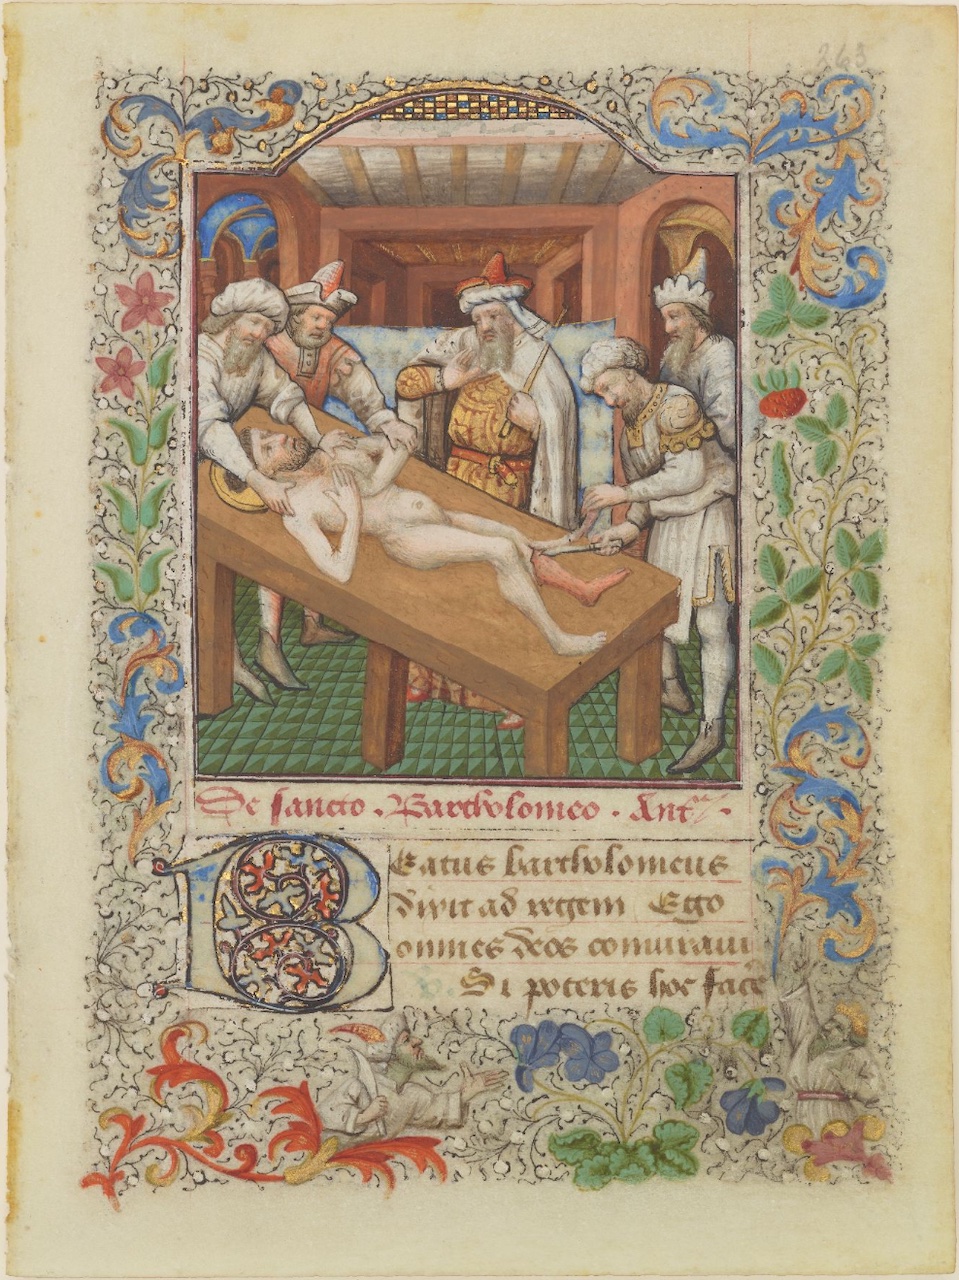 263
De sancto · Bartholomeo · Ant᷑ ·
Beatus bartholomeus
dixit ad regem Ego
omnes deos comminui
Si poteris hoc face